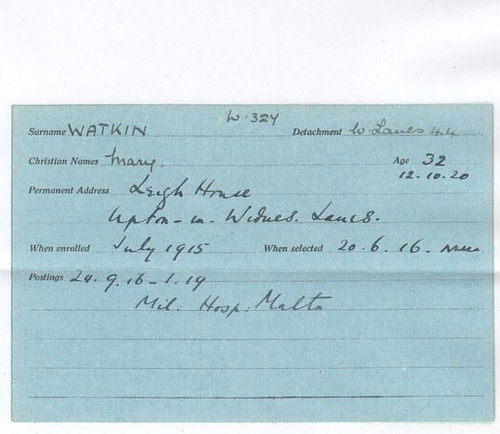 W.324
Surname WATKIN Detachment W. Lancs 44
Christian Names Mary. Age 32
12.10.20
Permanent Address Leigh House
Upton-in-Widnes. Lancs.
When enrolled July 1915 When selected 20.6.16.
Postings 24.9.16-1.19
Mil: Hosp: Malta